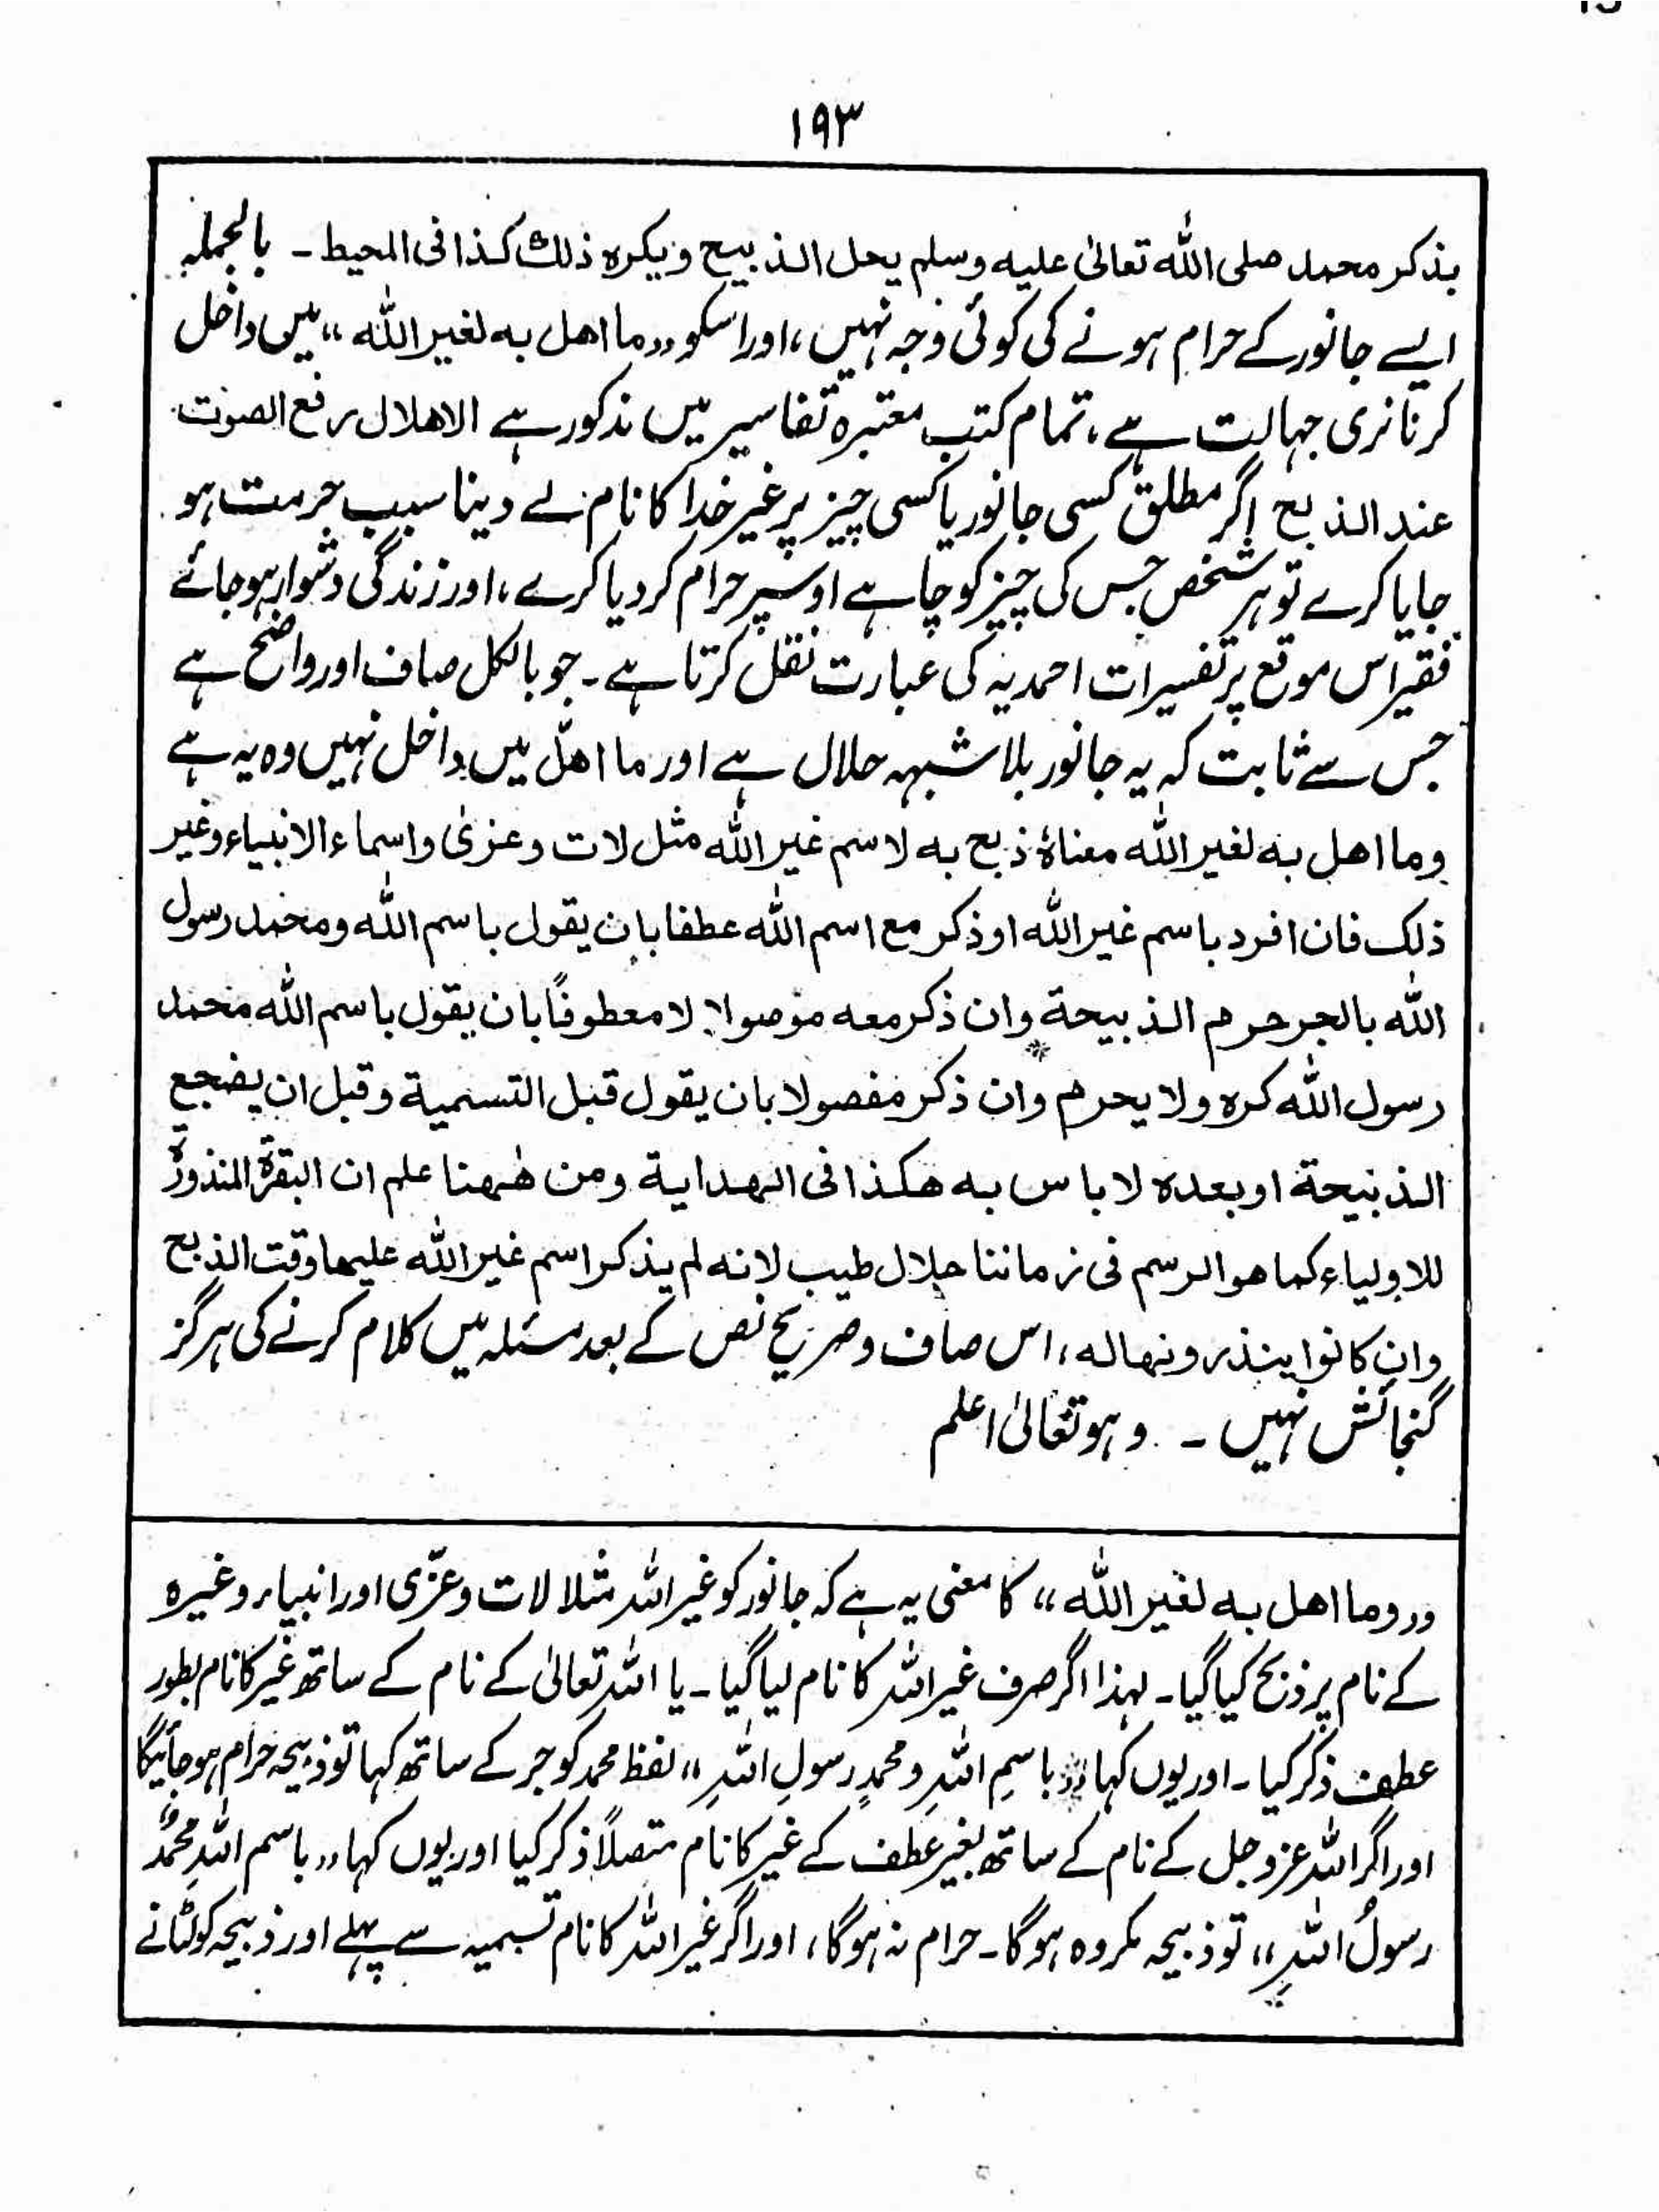 ۱۹۳
بذکر محمد صلی اللہ تعالیٰ علیہ وسلم یحل الذبیح ویکرہ ذلک کذا فی المحیط ۔ بالجملہ
ایسے جانور کے حرام ہونے کی کوئی وجہ نہیں، اور اسکو ,,ما اھل بہ لغیر اللہ،، میں داخل
کرنا نری جہالت ہے، تمام کتب معتبرہ تفاسیر میں مذکور ہے الاھلال رفع الصوت
عند الذبح اگر مطلق کسی جانور یا کسی چیز پر غیر خدا کا نام لے دینا سبب حرمت ہو
جایا کرے تو ہر شخص جس کی چیز کو چاہے اوسپر حرام کردیا کرے، اور زندگی دشوار ہوجائے
فقیر اس موقع پر تفسیرات احمدیہ کی عبارت نقل کرتا ہے ۔ جو بالکل صاف اور واضح ہے
جس سے ثابت کہ یہ جانور بلا شبہہ حلال ہے اور ما اھلّ میں داخل نہیں وہ یہ ہے
وما اھل بہ لغیر اللہ معناہ ذبح بہ لاسم غیر اللہ مثل لات وعزیٰ واسماء الانبیاء وغیر
ذلک فان افرد باسم غیر اللہ او ذکر مع اسم اللہ عطفا بان یقول باسم اللہ ومحمد رسول
اللہ بالجر حرم الذبیحۃ وان ذکر معہ موصولا لا معطوفًا بان یقول باسم اللہ محمد
رسول اللہ کرہ ولا یحرم وان ذکر مفصولا بان یقول قبل التسمیۃ وقبل ان یضجع
الذبیحۃ او بعدہ لا باس بہ ھکذا فی الہدایۃ ومن ھٰہنا علم ان البقرۃ المنذورۃ
للاولیاء کما ھو الرسم فی زماننا حلال طیب لانہ لم یذکر اسم غیر اللہ علیھا وقت الذبح
وان کانوا ینذرونھا لہ، اس صاف وصریح نص کے بعد مسئلہ میں کلام کرنے کی ہرگز
گنجائش نہیں ۔ وہو تعالیٰ اعلم
,,وما اھل بہ لغیر اللہ،، کا معنی یہ ہے کہ جانور کو غیر اللہ مثلا لات وعزّی اور انبیاء وغیرہ
کے نام پر ذبح کیا گیا ۔ لہذا اگر صرف غیر اللہ کا نام لیا گیا ۔ یا اللہ تعالیٰ کے نام کے ساتھ غیر کا نام بطور
عطف ذکر کیا ۔ اور یوں کہا ,,باسمِ اللہِ ومحمدٍ رسولِ اللہِ،، لفظ محمد کو جر کے ساتھ کہا تو ذبیحہ حرام ہوجائیگا
اور اگر اللہ عزوجل کے نام کے ساتھ بغیر عطف کے غیر کا نام متصلاً ذکر کیا اور یوں کہا ,,باسم اللہِ محمدٌ
رسولُ اللہِ،، تو ذبیحہ مکروہ ہوگا ۔ حرام نہ ہوگا، اور اگر غیر اللہ کا نام تسمیہ سے پہلے اور ذبیحہ کو لٹانے